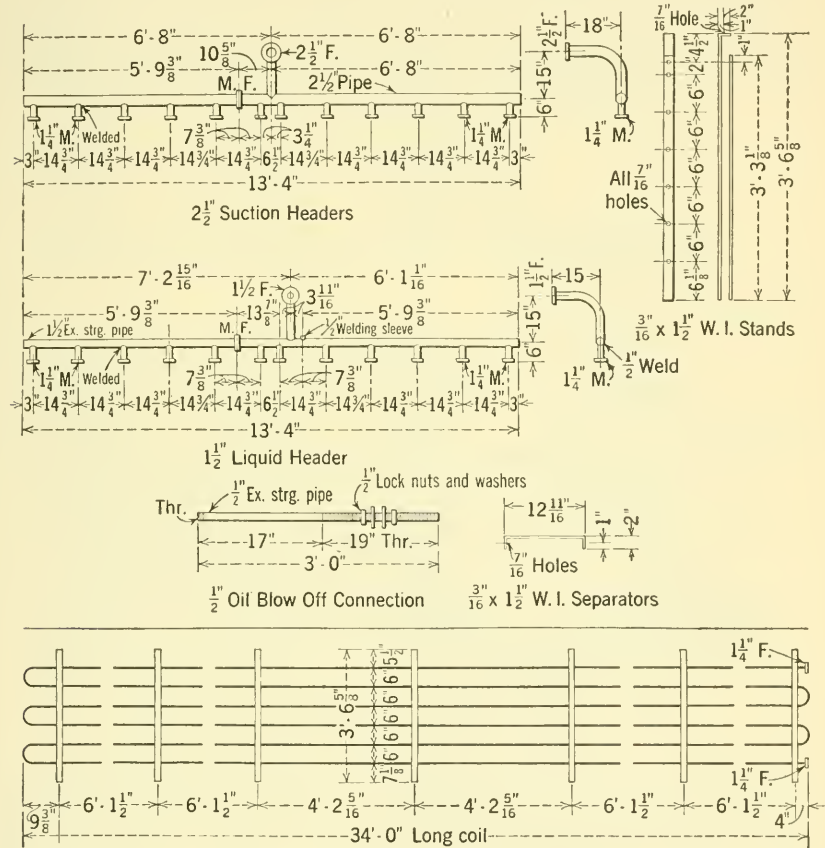 6'-8" 6'-8"
5'-9 3/8" 10 5/8" 2 1/2" F. 6'-8"
M. F. 2 1/2" Pipe
1 1/4" M. Welded 7 3/8" 3 1/4" 1 1/4" M.
3" 14 3/4" 14 3/4" 14 3/4" 14 3/4" 14 3/4" 6 1/2" 14 3/4" 14 3/4" 14 3/4" 14 3/4" 14 3/4" 3"
13'-4"
2 1/2" Suction Headers
2 1/2" F. 18"
15"
6"
1 1/4" M.
7/16" Hole 2"
1"
4 1/2" 1"
2"
6"
6"
6"
6"
6"
6 1/8"
All 7/16" holes
3'-3 1/8"
3'-6 5/8"
3/16" x 1 1/2" W. I. Stands
7'-2 15/16" 6'-1 1/16"
1 1/2" F. 3 11/16"
5'-9 3/8" 13 7/8" 5'-9 3/8"
1 1/2" Ex. strg. pipe M. F. 1/2" Welding sleeve
1 1/4" M. Welded 7 3/8" 7 3/8" 1 1/4" M.
3" 14 3/4" 14 3/4" 14 3/4" 14 3/4" 14 3/4" 6 1/2" 14 3/4" 14 3/4" 14 3/4" 14 3/4" 14 3/4" 3"
13'-4"
1 1/2" Liquid Header
1 1/2" F. 15
15"
6"
1/2" Weld
1 1/4" M.
1/2" Lock nuts and washers
Thr. 1/2" Ex. strg. pipe
17" 19" Thr.
3'-0"
1/2" Oil Blow Off Connection
12 11/16"
1" 2"
7/16" Holes
3/16" x 1 1/2" W. I. Separators
1 1/4" F.
3'-6 5/8"
5 1/2"
6"
6"
6"
6"
6"
7 1/8"
1 1/4" F.
9 3/8" 6'-1 1/2" 6'-1 1/2" 4'-2 5/16" 4'-2 5/16" 6'-1 1/2" 6'-1 1/2" 4"
34'-0" Long coil